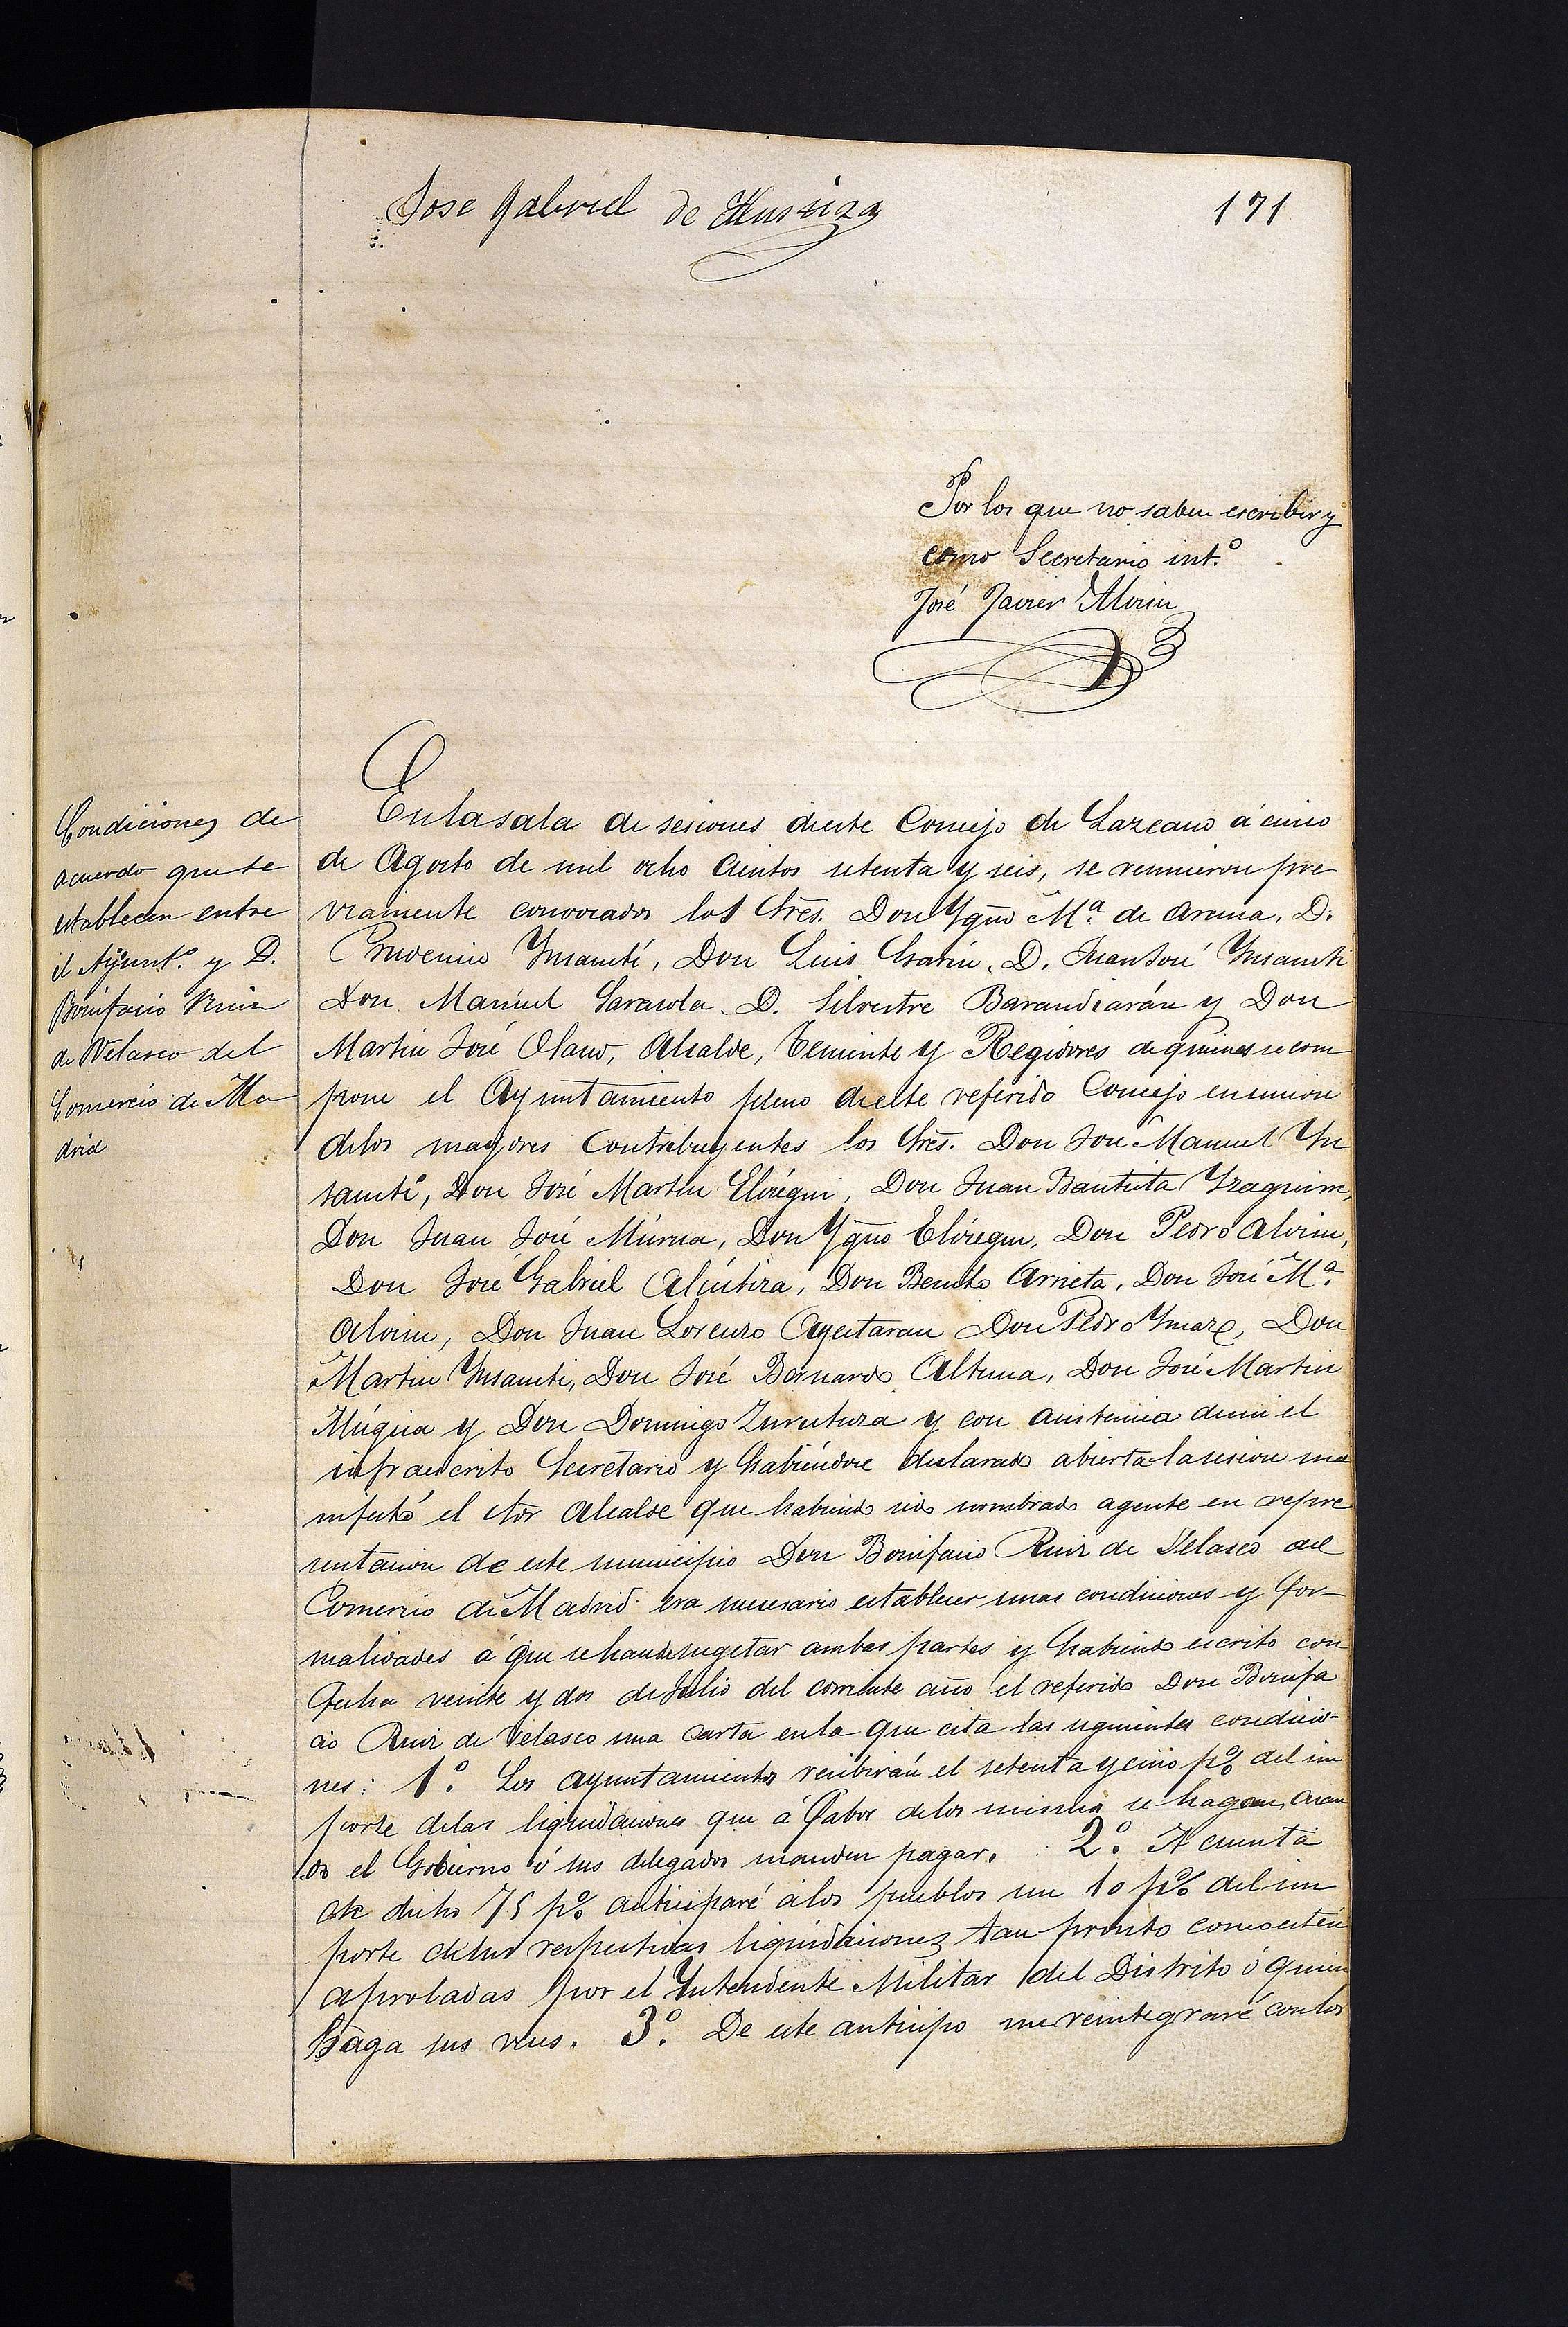 Jose Gabriel de
171
Por los que no saben escribir y
como Secretario int.º
José Javier Alorin
Condiciones de
acuerdo que se
establecen entre
el Ayunt.º y D.
Bonifacio Ruiz
de Velasco del
Comercio de Ma
drid
En la sala de sesiones de este Concejo de Lazcano á cinco
de Agosto de mil ocho cientos setenta y seis, se reunieron pre
viamente convocados los Sres. Don Ygnº Mª. de Arana, D.
Prudencio Ynsausti, Don Luis Garin, D. Juan José Ynsausti
Don Manuel Sarasola, D. Silvestre Barandiarán y Don
Martin José Olano, Alcalde, Teniente y Regidores de quienes se com
pone el Ayuntamiento pleno de este referido Concejo en union
de los mayores Contribuyentes los Sres. Don José Manuel Yn
sausti, Don José Martin Elósegui, Don Juan Bautista Yzaguirre,
Don Juan José Múrua, Don Ygnº Elósegui, Don Pedro Alorin,
Don José Gabriel Alústiza, Don Benito Arrieta, Don José Mª.
Alorin, Don Juan Lorenzo Ayestaran Don Pedro Ymaz, Don
Martin Ynsausti, Don José Bernardo Altuna, Don José Martin
Múgica y Don Domingo Zurutuza y con asistencia de mi el
infraescrito Secretario y habiéndose declarado abierta la sesion ma
nifestó el Sor Alcalde que habiendo sido nombrado agente en repre
sentacion de este municipio Don Bonifacio Ruiz de Velasco del
Comercio de Madrid era necesario establecer unas condiciones y for
malidades á que se han de sugetar ambas partes y habiendo escrito con
fecha veinte y dos de Julio del corriente año el referido Don Bonifa
cio Ruiz de Velasco una carta en la que cita las siguientes condicio-
nes: 1º. Los ayuntamientos recibirán el setenta y cinco p% del im
porte de las liquidaciones que á favor de los mismos se hagan, cuan
do el Gobierno ó sus delegados manden pagar. 2º. A cuenta
de dicho 75 p% anticiparé á los pueblos un 10 p% del im
porte de sus respectivas liquidaciones tan pronto como estén
aprobadas por el Yntendente Militar del Distrito ó quien
haga sus veces. 3º. De este anticipo me reintegraré con los